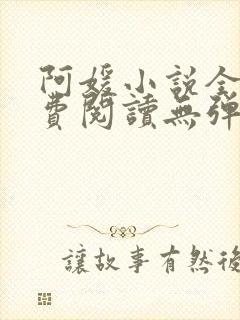 阿媛小說全
費閱讀無彈
讓故事有然後